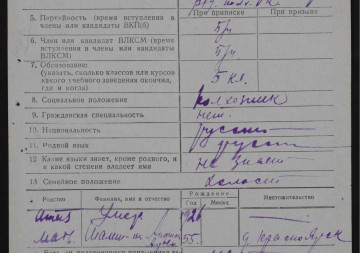 При приписке При призыве
5. Партейность (время вступления в члены или кандидаты ВКП(б) б/п
6. Член или кандидат ВЛКСМ (время вступления в члены или кандидаты ВЛКСМ) б/п
7. Образование: (указать, сколько классов или курсов какого учебного заведения окончил, где и когда) 5 кл.
8. Социальное положение колхозник
9. Гражданская специальность нет
10. Национальность русский
11. Родной язык русский
12 Какие языки знает, кроме родного, и в какой степени владеет ими не знает
13 Семейное положение холост
Родство Фамилия, имя и отчество Рождение Год Месяц Местожительство
отец умер
мать 55.